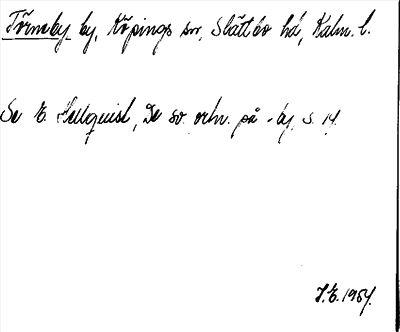 Törneby by, Köpings sn, Slättbo hd, Kalm. l.
Se E. Hellquist, De sv. ortn. på -by s. 14.
J.E. 1954.